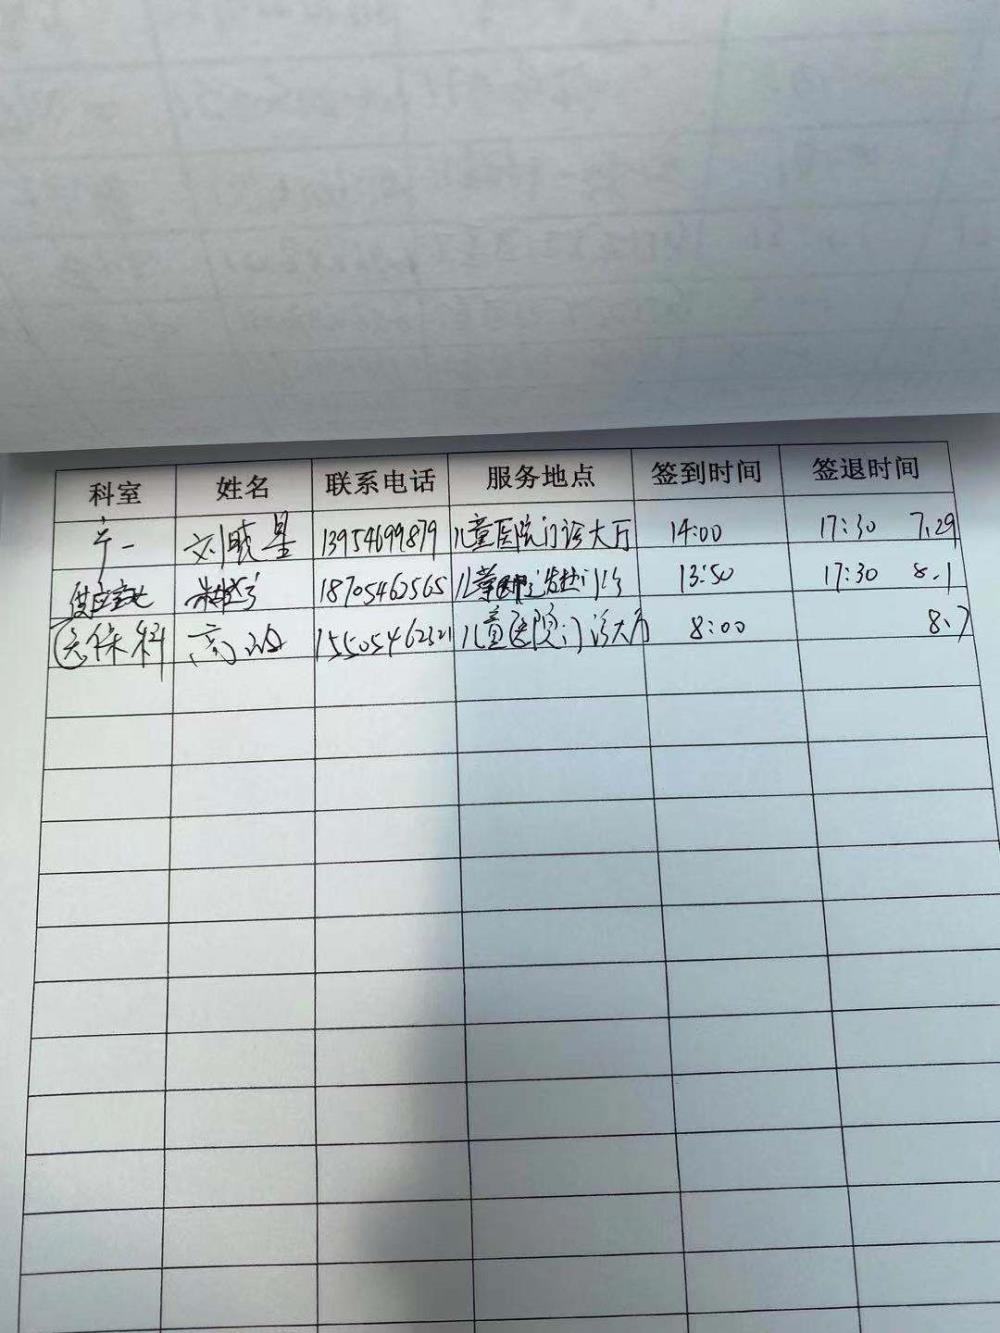 科室 姓名 联系电话 服务地点 签到时间 签退时间
产一 刘晓星 13954699879 儿童医院门诊大厅 14:00 17:30 7.29
供应室 18705462565 儿童 13:50 17:30 8.1
医保科 高 15505462321 儿童医院门诊大厅 8:00 8.7